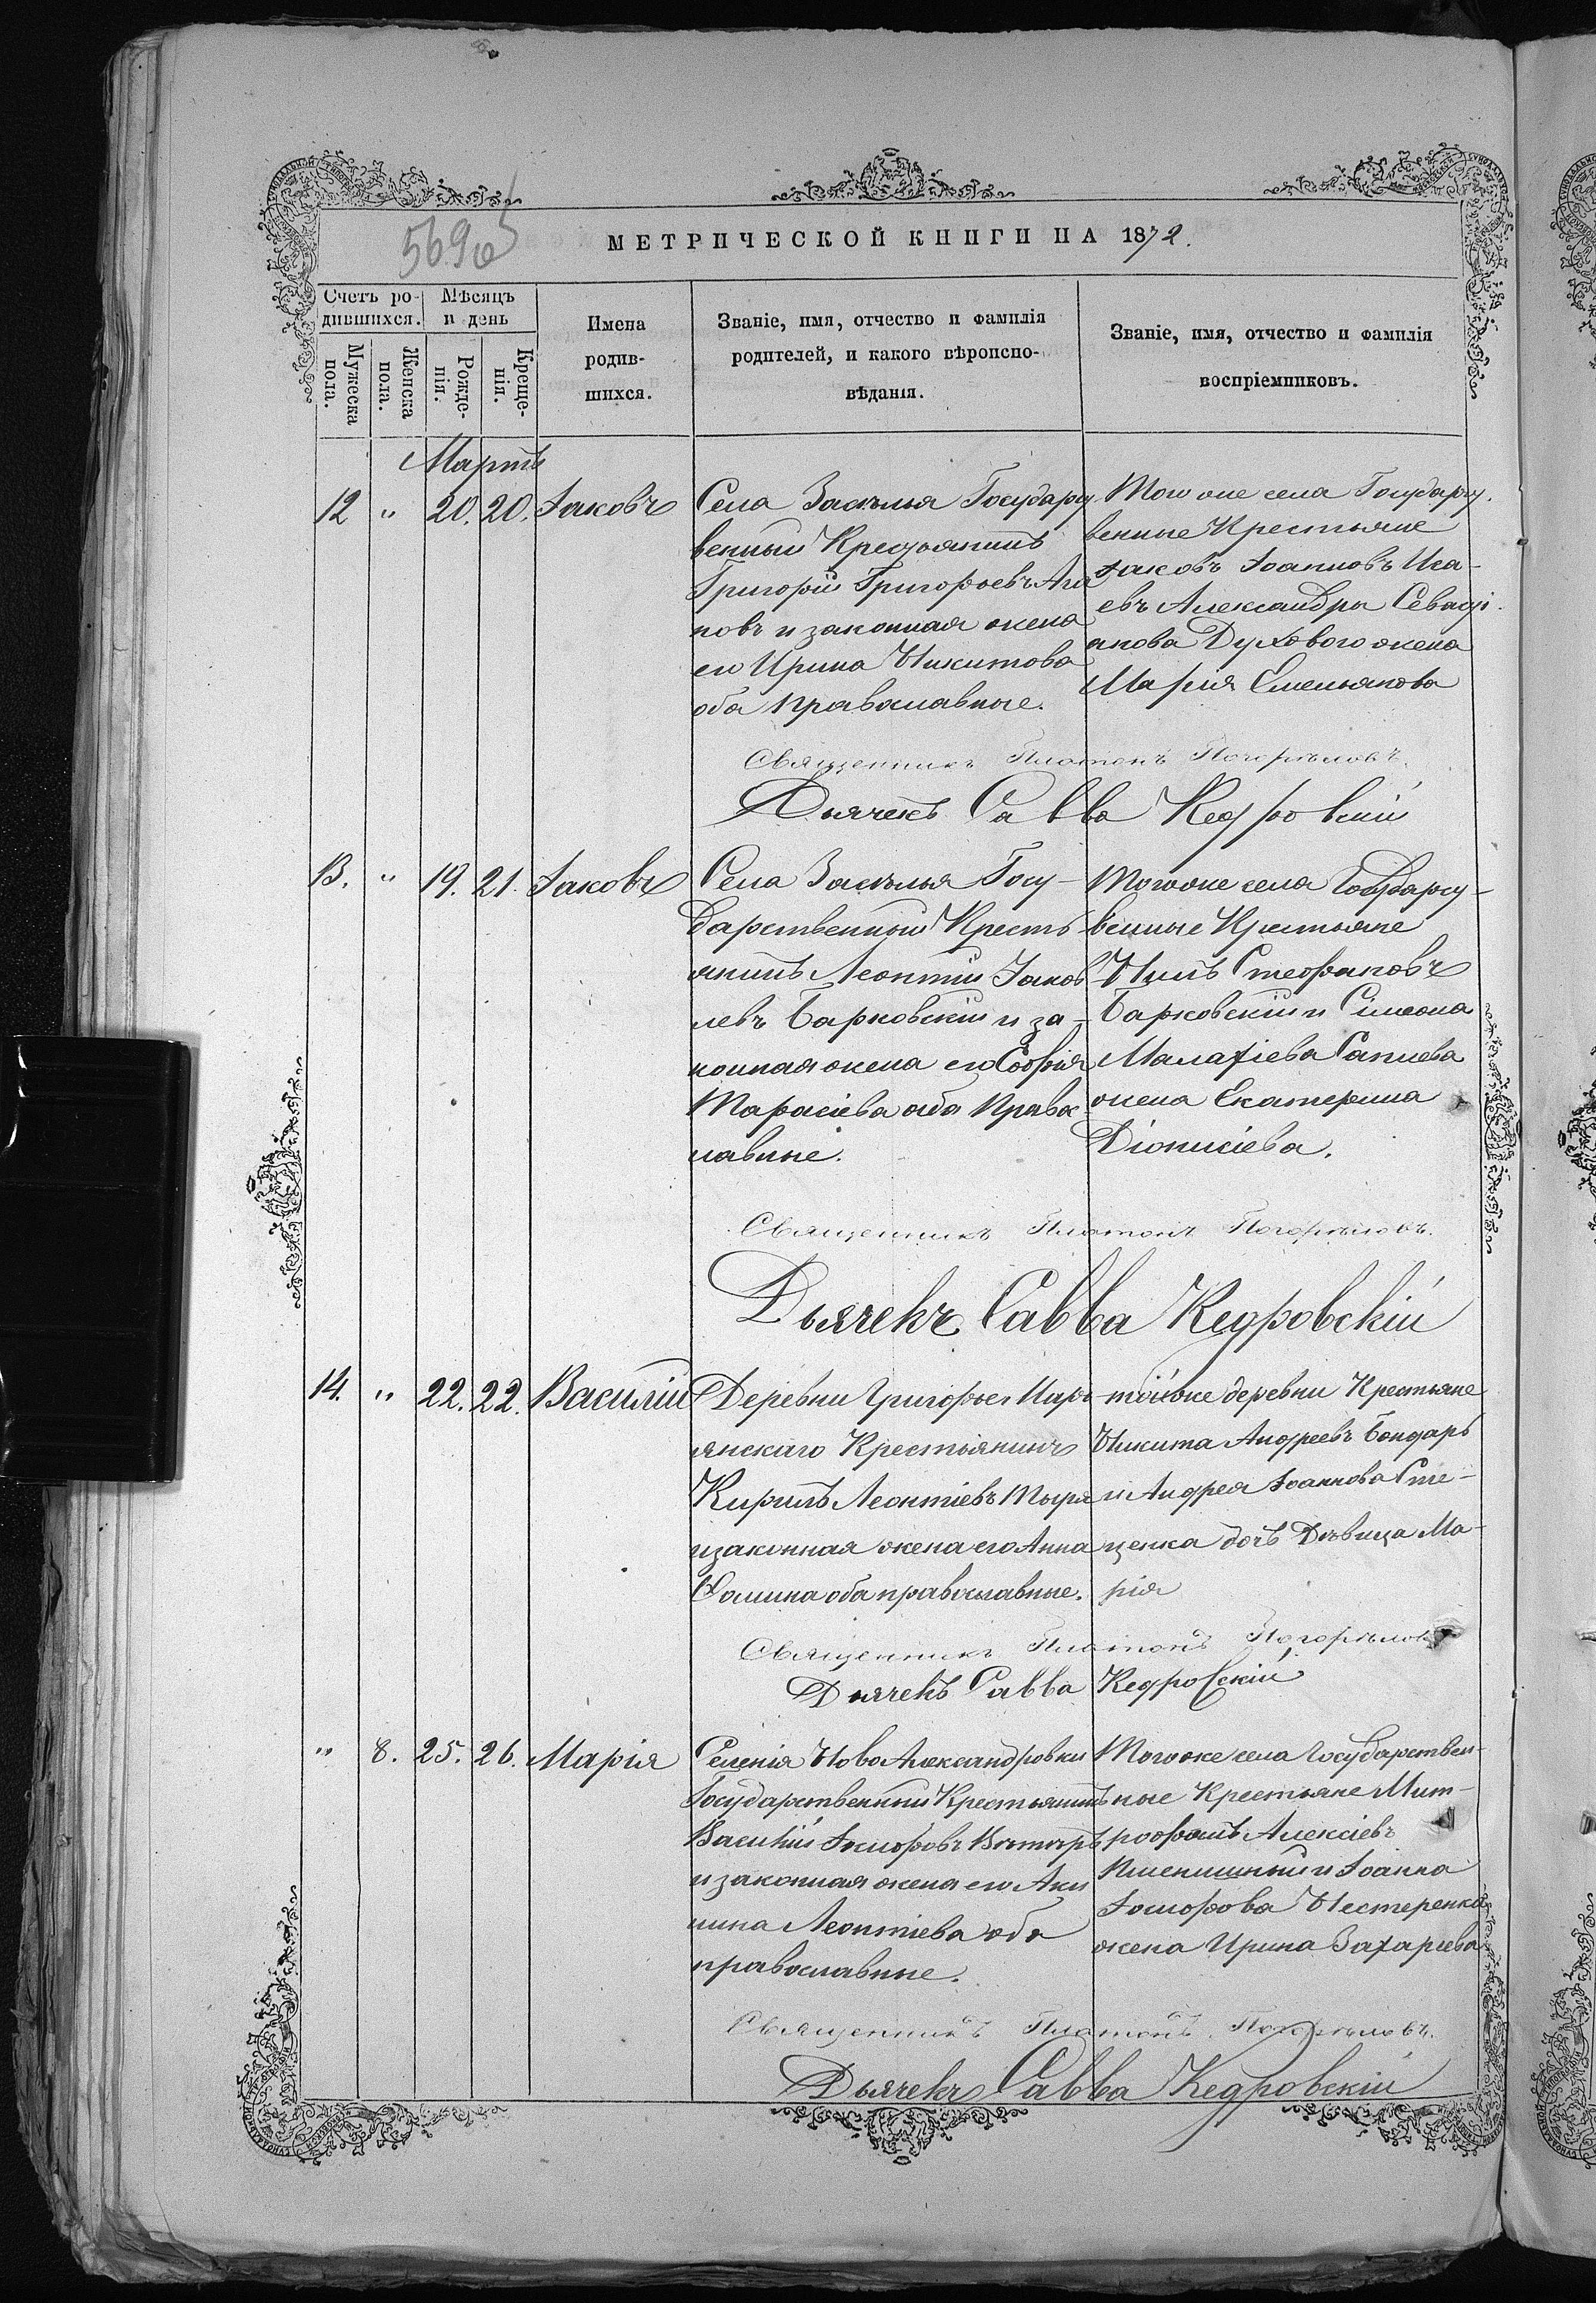 569об
МЕТРИЧЕСКОЙ КНИГИ НА 1872.
Счетъ ро-
дившихся.
Мѣсяцъ
и день
Мужеска
пола.
Женска
пола.
Рожде-
нія.
Креще-
нія.
Имена
родив-
шихся.
Званіе, имя, отчество и фамилія
родителей, и какого вѣроиспо-
вѣданія.
Званіе, имя, отчество и фамилія
воспріемниковъ.
Мартъ
12 " 20. 20. Іаковъ
Села Заселья Государст
венный Крестьянинъ
Григорій Григорьевъ Ага
повъ и законная жена
его Ирина Никитова
оба православные.
Того же села Государст.
венные Крестьяне
Іаковъ Іоанновъ Иса-
евъ Александра Севасті-
анова Духового жена
Марія Емельянова
Священникъ Платонъ Погорѣловъ.
Дьячекъ Савва Кедровскій
13. " 19. 21. Іаковъ
Села Заселья Госу-
дарственный Кресть
янинъ Леонтій Іаков
левъ Барковскій и за-
конная жена его Софія
Тарасіева оба Правос
лавные.
Того же села Государст-
венные Крестьяне
Нилъ Стефановъ
Барковскій и Сімеона
Малахіева Сапиева
жена Екатерина
Діонисіева.
Священникъ Платонъ Погорѣловъ.
Дьячекъ Савва Кедровскій
14. " 22. 22. Василій
Деревни Григорье Мар
янскаго Крестьянинъ
Кирилъ Леонтіевъ Тыра
и законная жена его Анна
Фомина оба православные.
той же деревни Крестьяне
Никита Андреевъ Бондарь
и Андрея Іоаннова Сте-
ценка дочь Дѣвица Ма-
рія
Священникъ Платонъ Погорѣловъ
Дьячекъ Савва Кедровскій
" 8. 25. 26. Марія
Селенія Ново Александровки
Государственный Крестьянинъ
Василій Іосифовъ
и законная жена его Аки
лина Леонтіева оба
православные.
Того же села Государствен-
ные Крестьяне Мит-
рофанъ Алексіевъ
Пшенишный и Іоанна
Іосифова Нестеренка
жена Ирина Захариева
Священникъ Платонъ Погорѣловъ.
Дьячекъ Савва Кедровскій